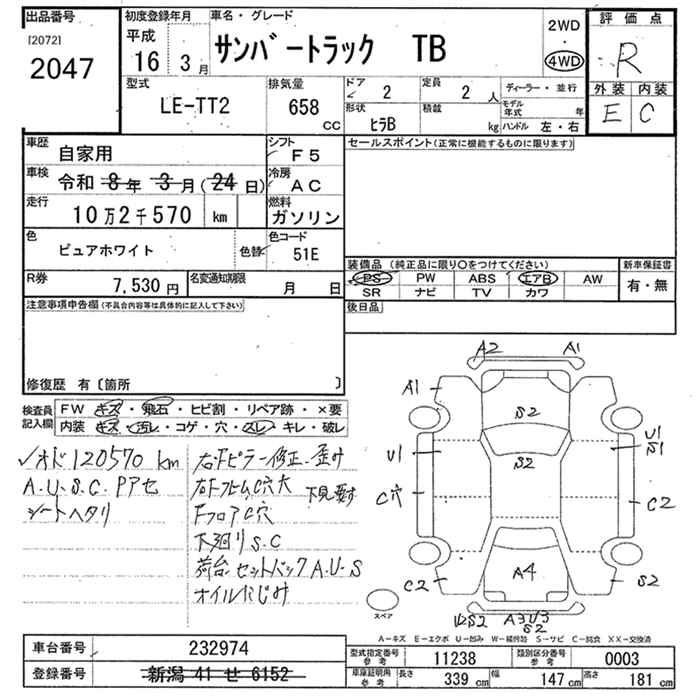 出品番号
[2072]
2047
初度登録年月
平成
16 3月
車名・グレード
サンバートラック TB
2WD
・
4WD
評価点
R
外装 内装
E C
型式
LE-TT2
排気量
658
CC
ドア
2
定員
2 人
ディーラー・並行
形状
ヒラB
積載
kg
モデル年式
年
ハンドル 左・右
車歴
自家用
シフト
F5
車検
令和 8年 3月(24日)
冷房
AC
走行
10万2千570 km
燃料
ガソリン
色
ピュアホワイト
色替
色コード
51E
R券
7,530円
名変通知期限
月 日
セールスポイント(正常に機能するものに限ります)
装備品 (純正品に限り○をつけてください)
新車保証書
PS PW ABS エアB AW
有・無
SR ナビ TV カワ
後日品
注意事項申告欄(不具合内容等は具体的に記入して下さい)
修復歴 有〔箇所 〕
検査員
記入欄
FW キズ・飛石・ヒビ割・リペア跡・×要
内装 キズ・汚レ・コゲ・穴・スレ・キレ・破レ
✓オド120570 km
A.U.S.C.Pアセ
シートヘタリ
右Fピラー修正、歪み
右FフヒムC穴大 下見要す
FフロアC穴
下廻りS.C
荷台セットバックA.U.S
オイルにじみ
A2 A1
A1
S2
U1
S2
U1
S1
C穴
C2
C2
A4
S2
スペア
A3U3
S2
A-キズ E-エクボ U-凹み W-補修跡 S-サビ C-腐食 XX-交換済
車台番号
232974
登録番号
新潟 41 せ 6152
型式指定番号
参考
11238
類別区分番号
参考
0003
車庫証明用
参考
長さ 339 cm
幅 147 cm
高さ 181 cm